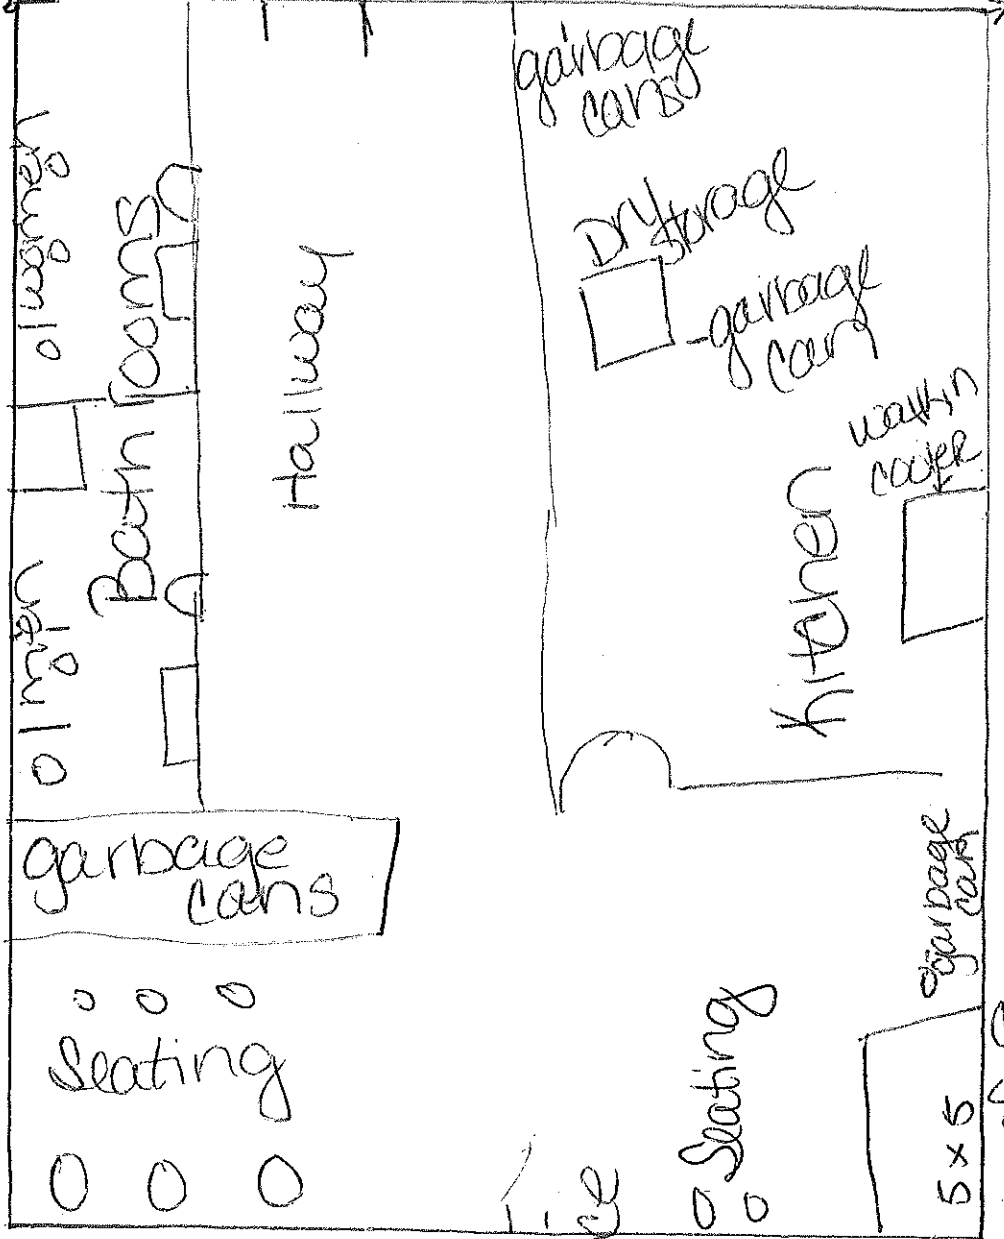 garbage
cans
o women
Bathrooms
Hallway
Dry
storage
- garbage
can
walk in
cooler
Kitchen
o men
garbage
cans
garbage
can
Seating
Seating
5 x 5